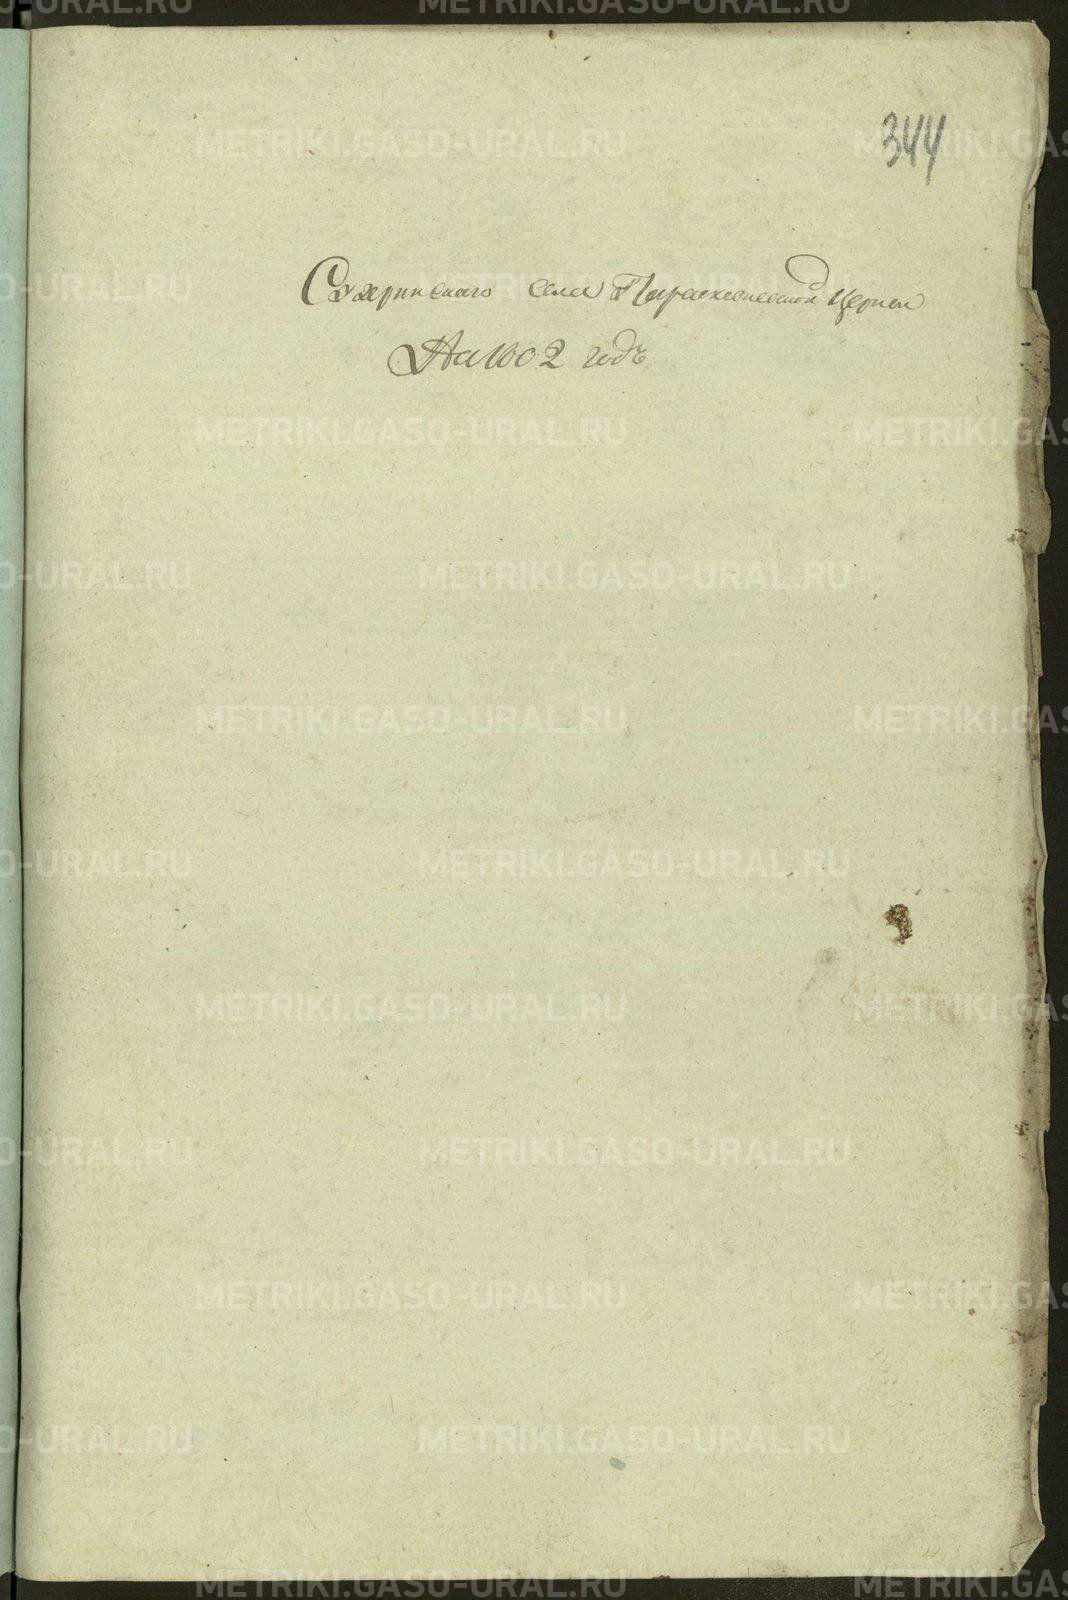 344
Сухринскаго села Параскевиевской Церкви
На 1802 годъ
METRIKI.GASO-URAL.RU